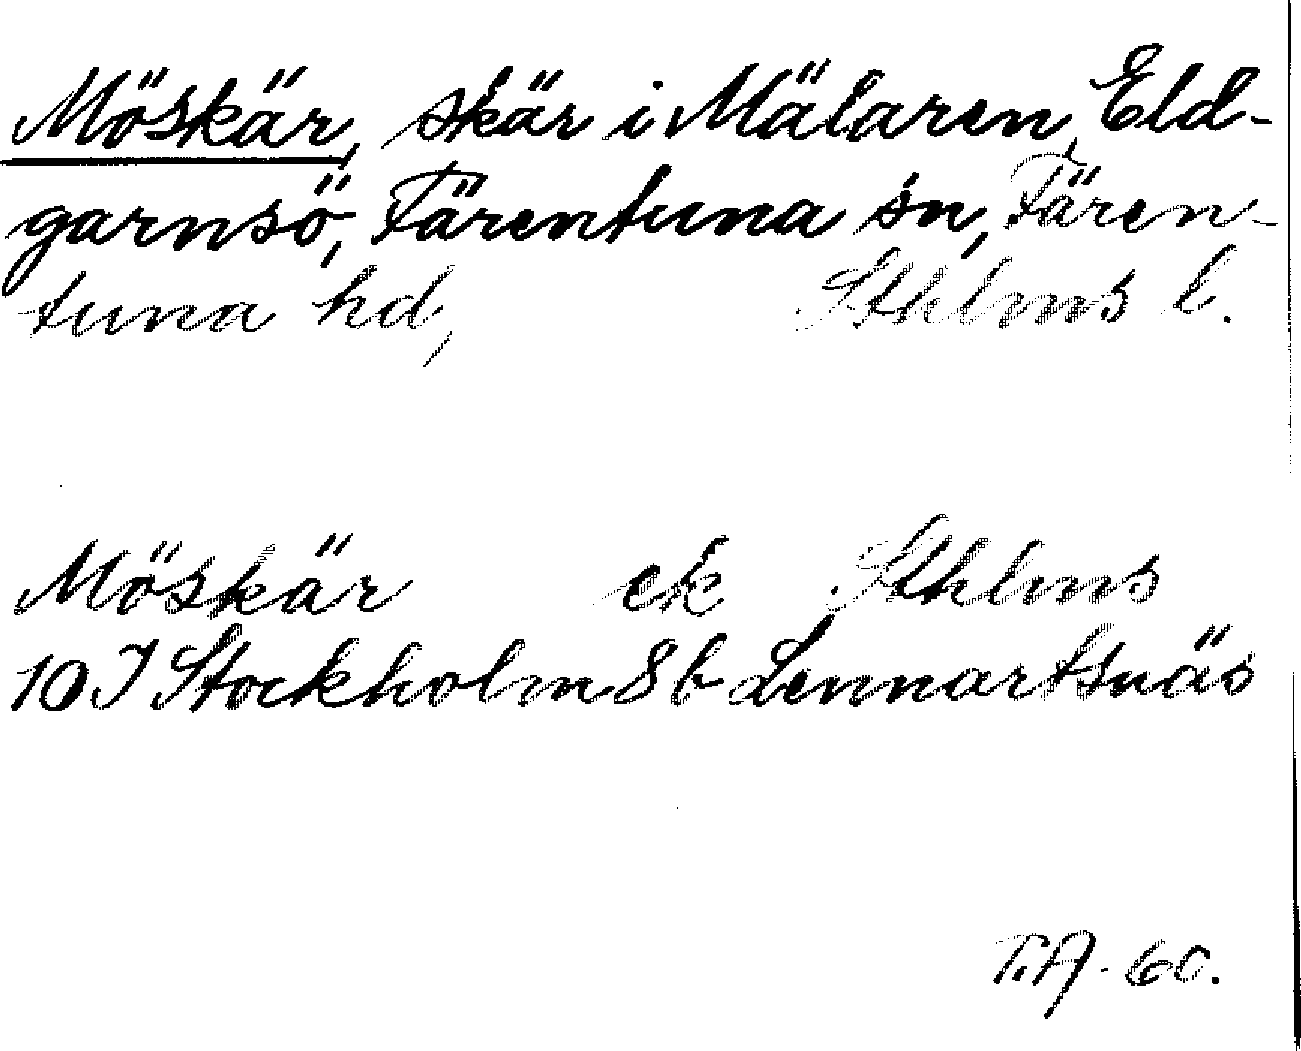 Möskär, skär i Mälaren, Eld-
garnsö, Färentuna sn, Fären-
tuna hd, Sthlms l.
Möskär ek Sthlms
10 I Stockholm 8 b Lennartsnäs
T.A. 60.